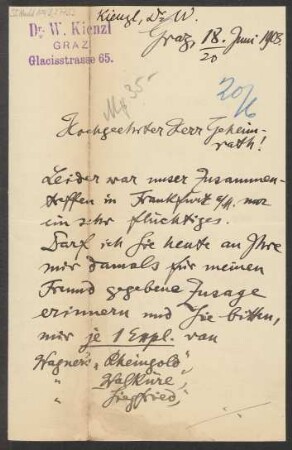 Kienzl, Dr W.
Dr. W. Kienzl
GRAZ
Glacisstrasse 65.
Graz, 18. Juni 1908.
20
Mg 35.-
20/6
Hochgeehrter Herr Geheim-
rath!
Leider war unser Zusammen-
treffen in Frankfurt a/M. nur
ein sehr flüchtiges.
Darf ich Sie heute an Ihre
mir damals für meinen
Freund gegebene Zusage
erinnern und Sie bitten,
mir je 1 Expl. von
Wagner's „Rheingold",
" Walküre",
" Siegfried",